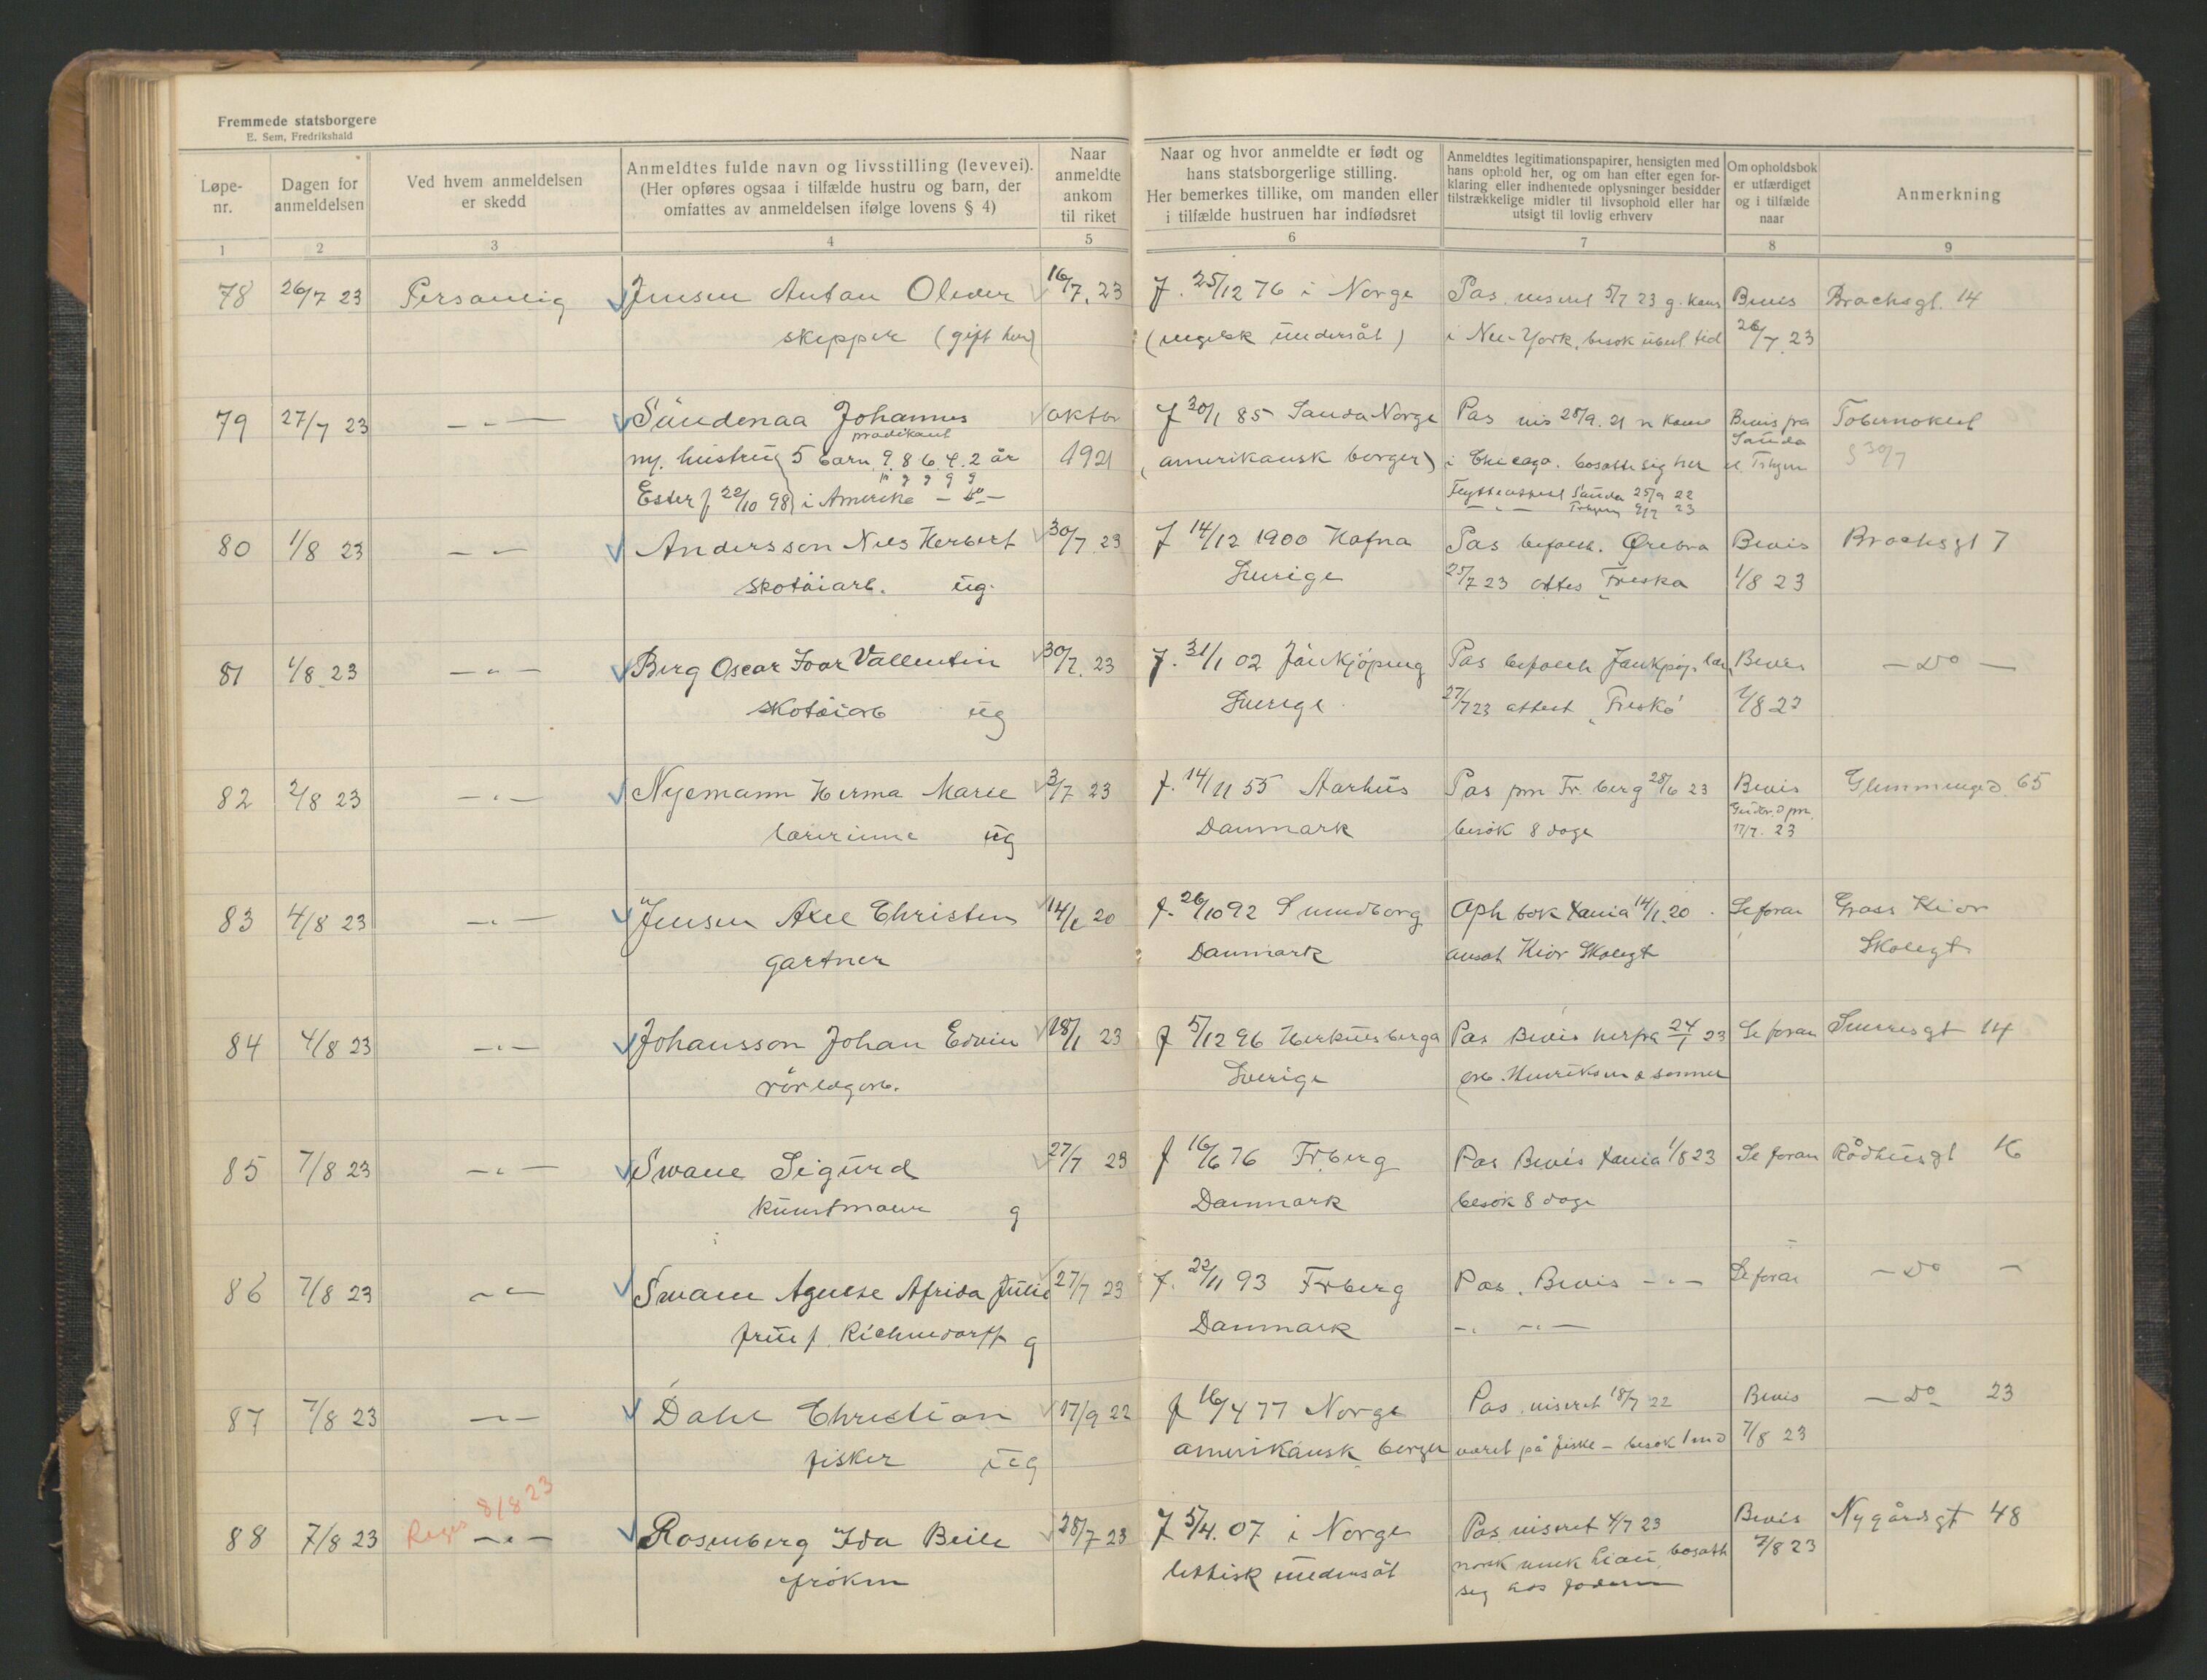 Fremmede statsborgere
E. Sem, Fredrikshald
Løpe-
nr.
Dagen for
anmeldelsen
Ved hvem anmeldelsen
er skedd
Anmeldtes fulde navn og livsstilling (levevei).
(Her opføres ogsaa i tilfælde hustru og barn, der
omfattes av anmeldelsen ifølge lovens § 4)
Naar
anmeldte
ankom
til riket
Naar og hvor anmeldte er født og
hans statsborgerlige stilling.
Her bemerkes tillike, om manden eller
i tilfælde hustruen har indfødsret
Anmeldtes legitimationspapirer, hensigten med
hans ophold her, og om han efter egen for-
klaring eller indhentede oplysninger besidder
tilstrækkelige midler til livsophold eller har
utsigt til lovlig erhverv
Om opholdsbok
er utfærdiget
og i tilfælde
naar
Anmerkning
1 2 3 4 5 6 7 8 9
78 26/7 23 Personlig Jensen Anton Oliver 16/7. 23 f. 25/12 76 i Norge Pas. viseret 5/7 23 g. kons Bevis Brochsgt. 14
skipper (gift her) (engelsk undersåt) i New-York. besøk ubest. tid 26/7. 23
79 27/7 23 - " - Sündenaa Johannes oktbr f 30/1 85 Sauda Norge Pas vis 28/9. 21 n kons Bevis fra Tabernaklet
prædikant Sauda
og hustru 5 barn 9. 8 6. 4. 2 år 1921 (amerikansk borger) i Chicago. bosatte sig her § 30/7
Ester f. 22/10 98 i Amerika - do - Flytteattest Sauda 25/9 22
80 1/8 23 - " - Andersson Nils Herbert 30/7 23 f 14/12 1900 Hafna Pas befalh. Ørebro Bevis Brochsgt 7
skotøiarb. ug. Sverige 25/7 23 attes "Freska 1/8 23
81 1/8 23 - " - Berg Oscar Ivar Vallentin 30/7. 23 f. 31/1 02 Jönkjöping Pas befalh Jönkjöp. län Bevis - do -
skotøiarb ug Sverige 27/7 23 attest "Fresko" 1/8 23
82 2/8 23 - " - Nyemann Herma Marie 3/7 23 f. 14/11 55 Aarhus Pas pm Fr. berg 28/6 23 Bevis Glemmengd 65
lærerinne ug Danmark besøk 8 dage Gudbr. d pm.
17/7. 23
83 4/8 23 - " - Jensen Axel Christen 14/1 20 f. 26/10 92 Svendborg Oph bok Xania 14/1. 20 Se foran Gross Kiør
gartner Danmark ansat Kiør Skolegt Skolegt
84 4/8 23 - " - Johansson Johan Edvin 18/1 23 f 5/12 96 Herkulesberga Pas Bevis herfra 24/1 23 Se foran Sverresgt 14
rørlægarb. Sverige arb. Henriksen & sønner
85 7/8 23 - " - Swane Sigurd 27/7 23 f 16/6 76 Fr.berg Pas Bevis Xania 1/8 23 Se foran Rådhusgt 16
kunstmaler g Danmark besøk 8 dage
86 7/8 23 - " - Swane Agnese Afrida Julie 27/7 23 f. 22/11 93 Frberg Pas. Bevis - " - Se foran - do -
frue f. g Danmark - " - " -
87 7/8 23 - " - Dahl Christian 17/9 22 f 16/4 77 Norge Pas. viseret 18/7 22 Bevis - do - 23
fisker ug amerikansk borger været på fiske - besøk 1 md 7/8 23
Regis 8/8 23
88 7/8 23 - " - Rosenberg Ida Beile 28/7 23 f 5/4. 07 i Norge Pas viseret 4/7 23 Bevis Nygårdsgt 48
frøken lettisk undersåt norsk bosatt 7/8 23
seg hos faderen